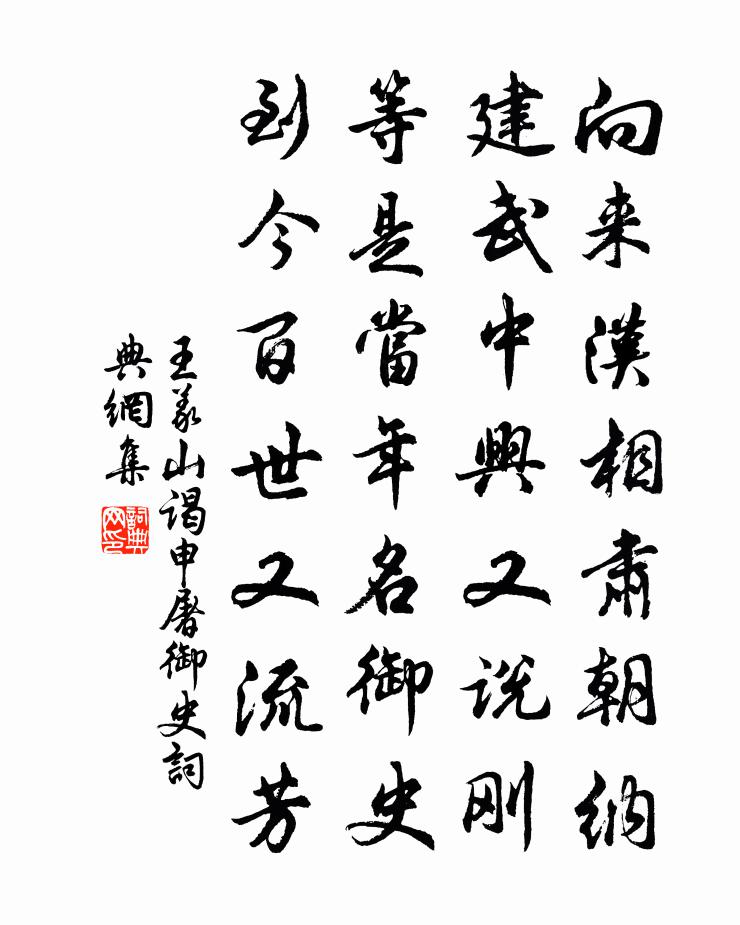 向来漢相肅朝納
建武中興又説刚
等是當年名御史
到今百世又流芳
王義山謁申屠御史詞
典網集
詞典网印